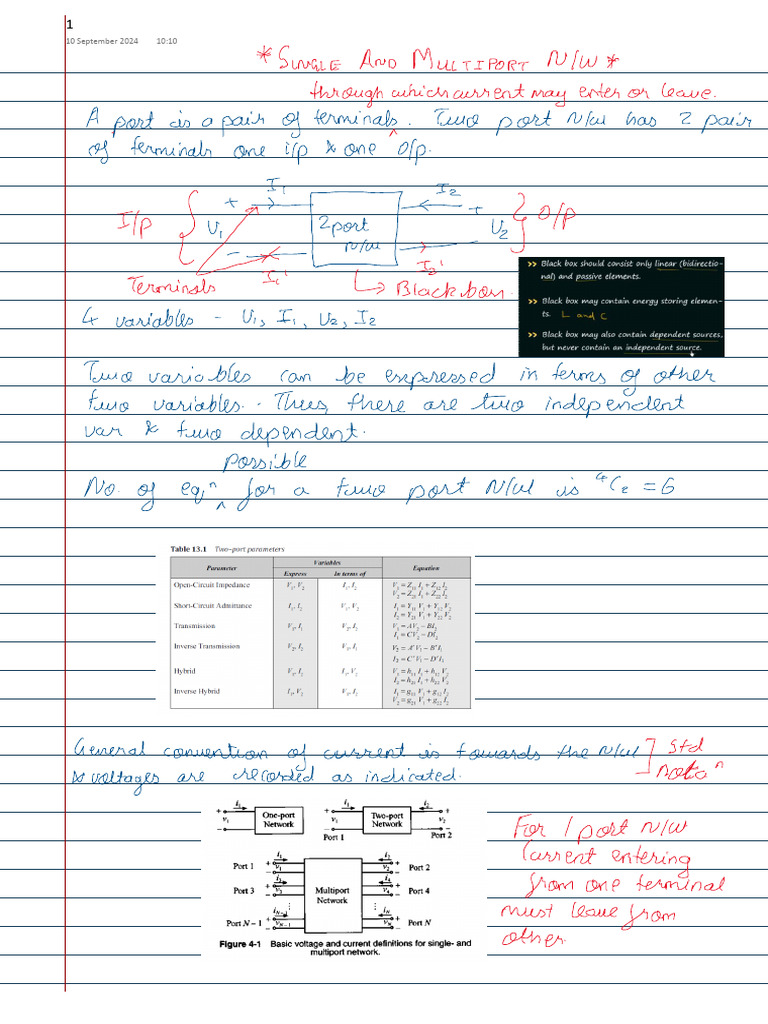 1
10 September 2024 10:10
* SINGLE AND MULTIPORT N/W *
through which current may enter or leave.
A port is a pair of terminals. Two port N/W has 2 pair
of terminals one i/p & one o/p.
I1 I2
+ +
I/P V1 2 port N/W V2 O/P
I1' I2'
Terminals Black box.
4 variables - V1, I1, V2, I2
>> Black box should consist only linear (bidirectio-
nal) and passive elements.
>> Black box may contain energy storing elemen-
ts. L and C
>> Black box may also contain dependent sources,
but never contain an independent source.
Two variables can be expressed in terms of other
two variables. Thus, there are two independent
var & two dependent.
possible
No. of eqⁿ ^ for a two port N/W is ⁴C₂ = 6
Table 13.1 Two-port parameters
Parameter Variables Equation
Express In terms of
Open-Circuit Impedance V1, V2 I1, I2 V1 = Z11 I1 + Z12 I2
V2 = Z21 I1 + Z22 I2
Short-Circuit Admittance I1, I2 V1, V2 I1 = Y11 V1 + Y12 V2
I2 = Y21 V1 + Y22 V2
Transmission V1, I1 V2, I2 V1 = AV2 – BI2
I1 = CV2 – DI2
Inverse Transmission V2, I2 V1, I1 V2 = A'V1 – B'I1
I2 = C'V1 – D'I1
Hybrid V1, I2 I1, V2 V1 = h11 I1 + h12 V2
I2 = h21 I1 + h22 V2
Inverse Hybrid I1, V2 V1, I2 I1 = g11 V1 + g12 I2
V2 = g21 V1 + g22 I2
General convention of current is towards the N/W
& voltages are recorded as indicated.
Std
notaⁿ
One-port Network
Two-port Network
Port 1 Port 2
Port 1 Port 2
Port 3 Multiport Network Port 4
Port N – 1 Port N
Figure 4-1 Basic voltage and current definitions for single- and
multiport network.
For 1 port N/W
Current entering
from one terminal
must leave from
other.